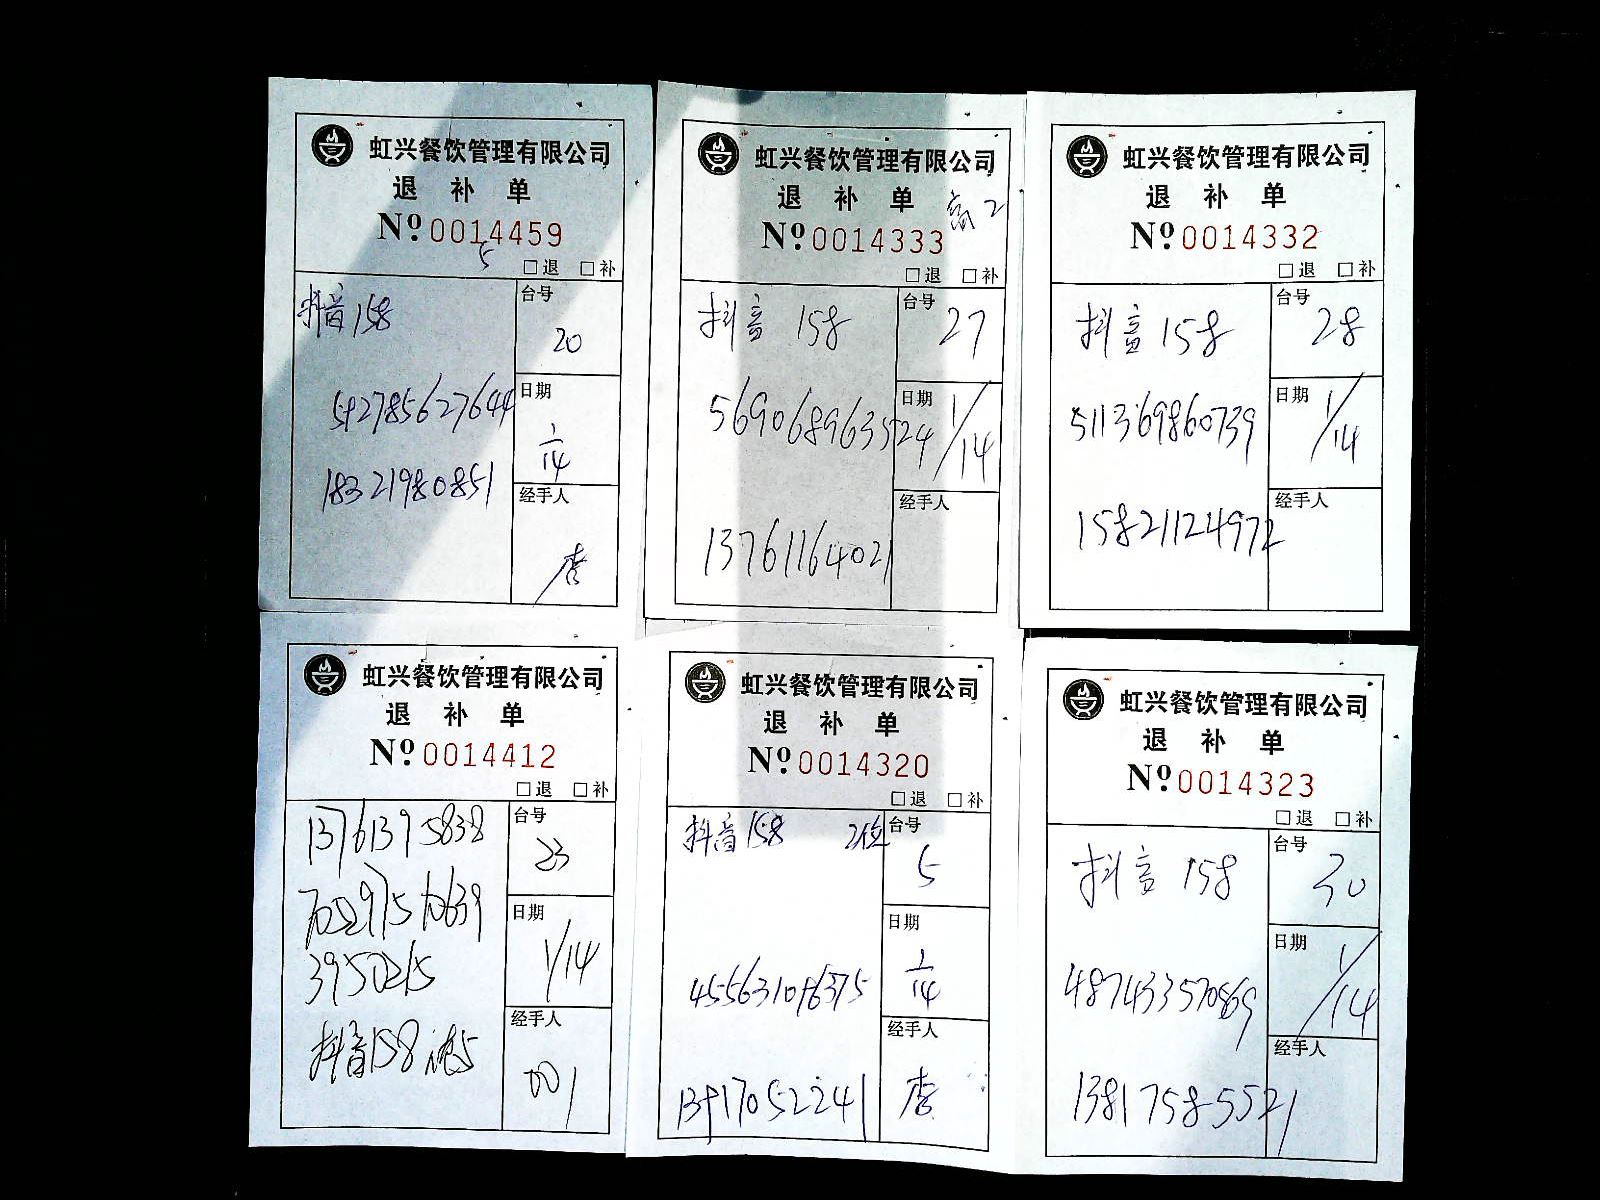 虹兴餐饮管理有限公司
退 补 单
Nº 0014459
5
□退 □补
抖音 158
台号
20
542785627644
日期
1/14
18321980851
经手人
李
虹兴餐饮管理有限公司
退 补 单
高2
Nº 0014333
□退 □补
抖音 158
台号
27
569068963524
日期
1/14
13761164021
经手人
虹兴餐饮管理有限公司
退 补 单
Nº 0014332
□退 □补
抖音 158
台号
28
511369860739
日期
1/14
15821124972
经手人
虹兴餐饮管理有限公司
退 补 单
Nº 0014412
□退 □补
13761395838
台号
23
日期
1/14
抖音158
经手人
001
虹兴餐饮管理有限公司
退 补 单
Nº 0014320
□退 □补
抖音 158 2位
台号
5
日期
1/14
13917052241
经手人
李
虹兴餐饮管理有限公司
退 补 单
Nº 0014323
□退 □补
抖音 158
台号
30
487433570869
日期
1/14
13817585521
经手人